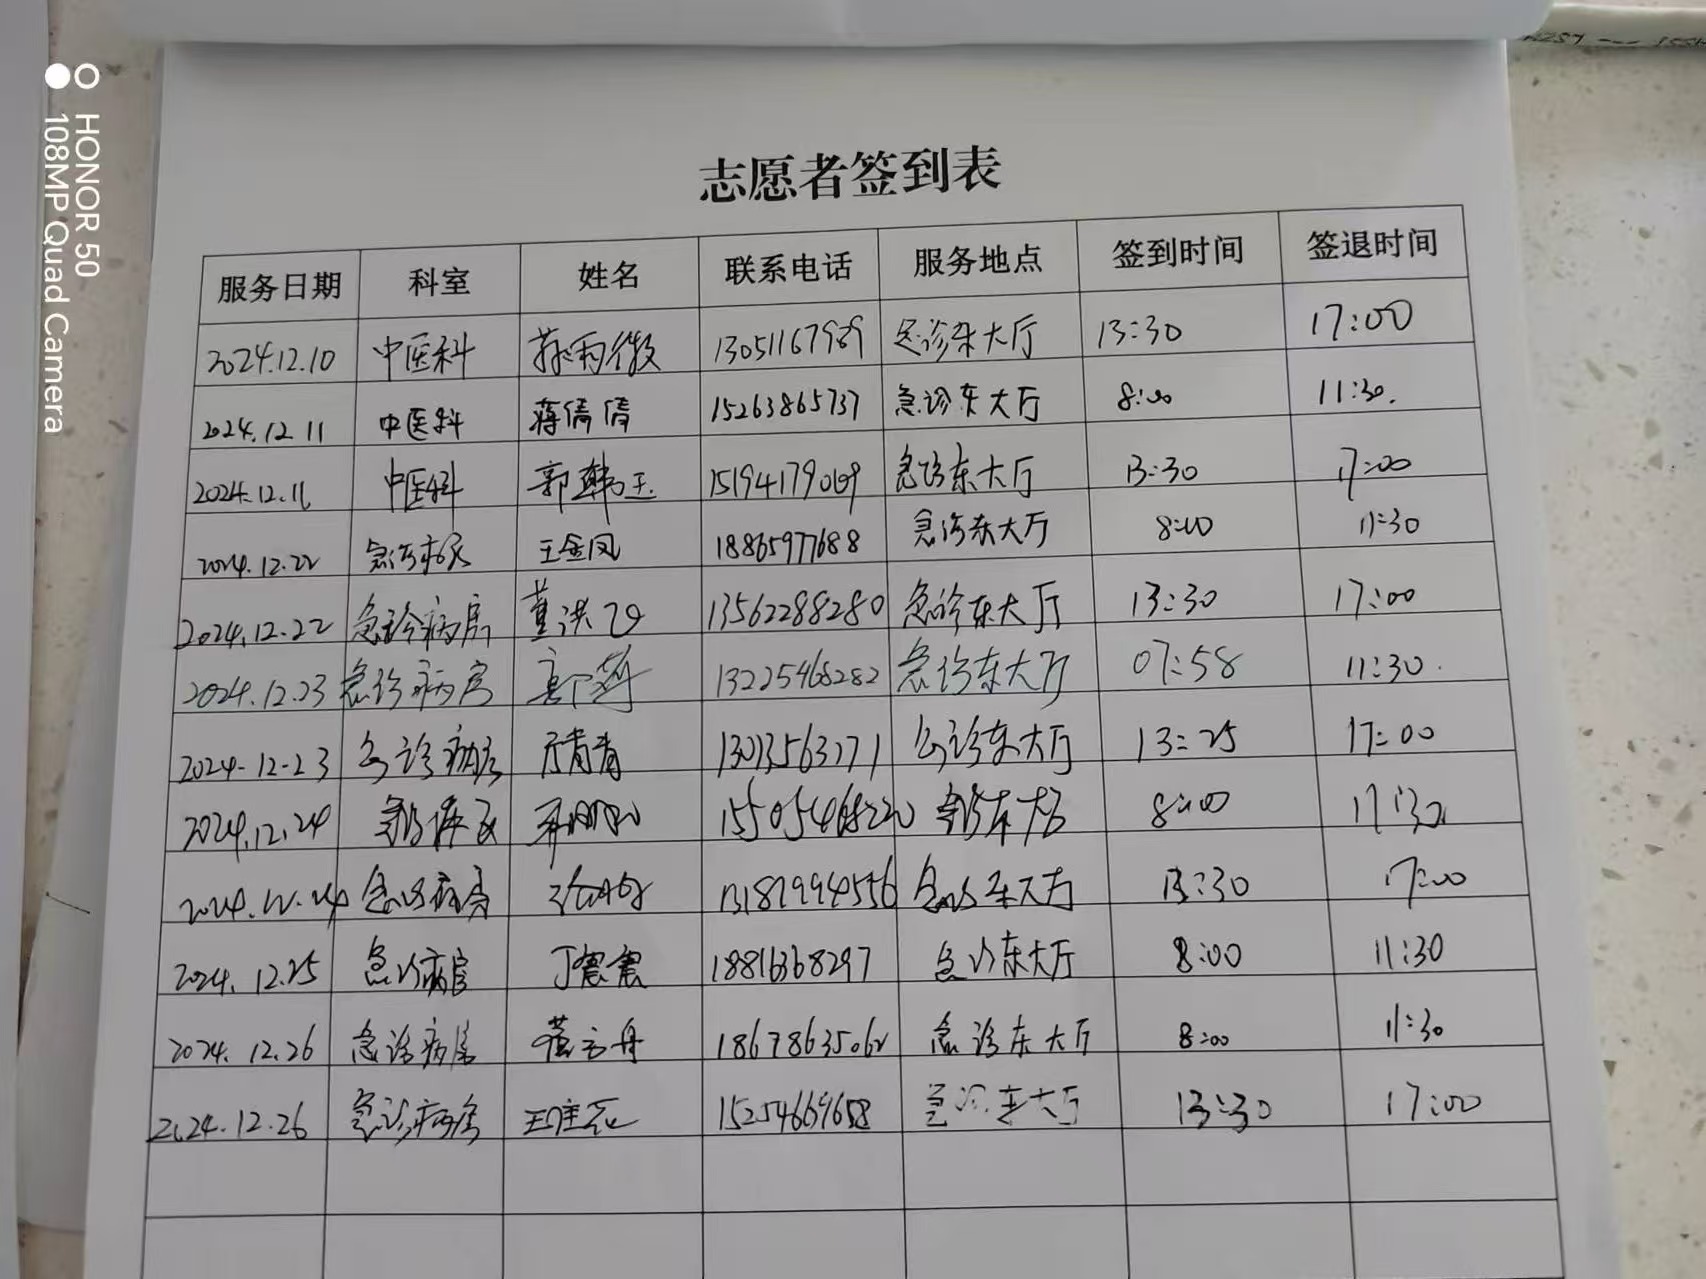 HONOR 50
108MP Quad Camera
志愿者签到表
服务日期 科室 姓名 联系电话 服务地点 签到时间 签退时间
2024.12.10 中医科 13051167989 急诊东大厅 13:30 17:00
2024.12.11 中医科 蒋倩倩 15263865737 急诊东大厅 8:00 11:30.
2024.12.11 中医科 郭韩玉 15194179069 急诊东大厅 13:30 17:00
2024.12.22 急诊病房 王金凤 18865977688 急诊东大厅 8:00 11:30
2024.12.22 急诊病房 董洪 13562288280 急诊东大厅 13:30 17:00
2024.12.23 急诊病房 13225468282 急诊东大厅 07:58 11:30.
2024-12-23 急诊病房 青青 急诊东大厅 13:25 17:00
2024.12.24 急诊病房 15505468220 急诊东大厅 8:00 11:30
2024.12.24 急诊病房 急诊东大厅 13:30 17:00
2024.12.25 急诊病房 丁震震 18816368297 急诊东大厅 8:00 11:30
2024.12.26 急诊病房 18678635062 急诊东大厅 8:00 11:30
2024.12.26 急诊病房 15254669658 急诊东大厅 13:30 17:00